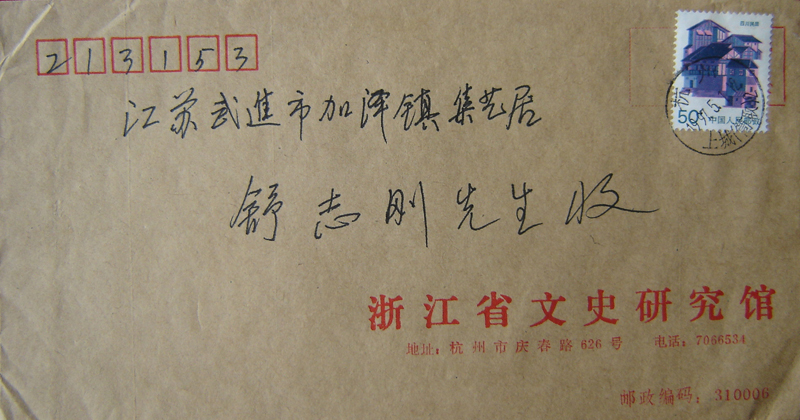 213153
50分 中国人民邮政
江苏武进市加泽镇集艺居
舒志刚先生收
浙江省文史研究馆
地址:杭州市庆春路626号 电话:7066534
邮政编码:310006